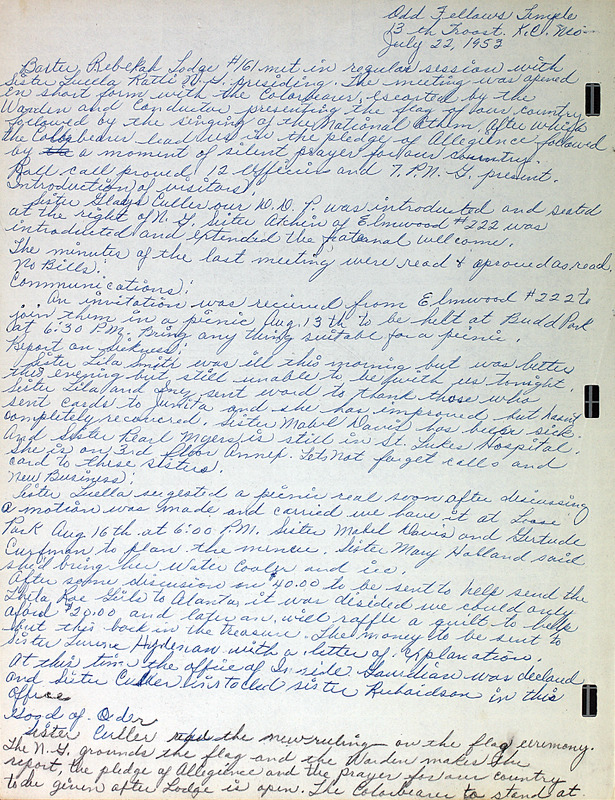 Odd Fellows Temple
13th Troost. K.C. Mo-
July 22, 1953
Baxter Rebekah Lodge #161 met in regular session with
Sister Luella Ratti N.G. presiding. The meeting was opened
in short form with the Colorbearer, escorted by the
Warden and Conductor presenting the flag of our country
followed by the singing of the National Athem, after which
the Colorbearer lead us in the pledge of Allegience followed
by a moment of silent prayer for our country.
Roll call proved 12 Officers and 7 P.N.G. present.
Introduction of visitors.
Sister Gladys Culler our D.D.P. was introducted and seated
at the right of N.G. Sister of Elmwood #222 was
introducted and extended the fraternal wellcome.
The minutes of the last meeting were read & aproved as read.
No Bills:
Communications:
An invitation was recieved from Elmwood #222 to
join them in a picnic Aug. 13th to be helt at Budd Park
at 6:30 P.M. Bring any thing suitable for a picnic.
Report on Sickness:
Sister Lila Smith was ill this morning but was better
this evening but still unable to be with us tonight.
Sister Lila and sent word to thank those who
sent cards to Junita and she has improved but hasn't
completely recovered. Sister Mabel Davis has been sick.
And Sister Pearl Myers is still in St. Lukes Hospital.
She is on 3rd floor Annex. Lets Not forget calls and
card to these sisters.
New Business:
Sister Luella sugested a picnic real soon after discussing
a motion was made and carried we have it at Loose
Park Aug 16th at 6:00 P.M. Sister Mabel Davis and Gertude
Curfman to plan the menue. Sister Mary Holland said
she'll bring her Water Cooler and ice.
After some discusion on $40.00 to be sent to help send the
Girls to Atlanta it was disided we could only
aford $20.00 and later on will raffle a quilt to help
put this back in the treasure. The money to be sent to
Sister with a letter of explanation.
At this time the office of Inside Gaurdian was declared
and Sister Culler sister Richardson in this
Office
Good of Order
Sister Culler read the new ruling on the flag ceremony.
The N.G. grounds the flag and the Warden makes the
report, the pledge of Allegience and the prayer for our country
to be given after Lodge is open. The Colorbearer to stand at